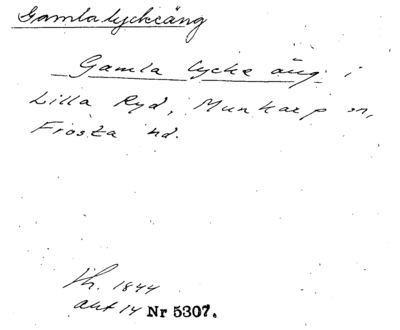 Gamla lyckeäng
Gamla lycke äng i
Lilla Ryd, Munkarp sn,
Frosta hd.
Th. 1844
akt 14 Nr 5307.